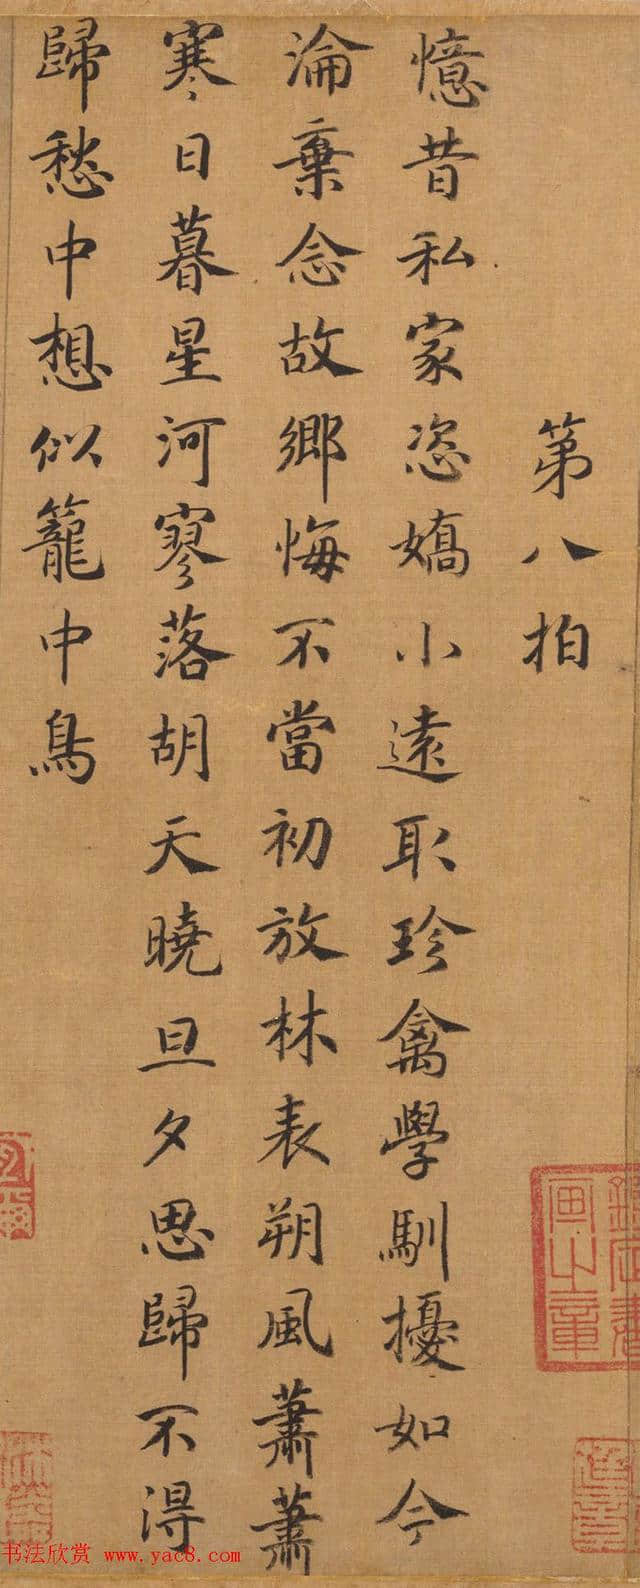 第八拍
憶昔私家恣嬌小遠取珍禽學馴擾如今
淪棄念故鄉悔不當初放林表朔風蕭蕭
寒日暮星河寥落胡天曉旦夕思歸不得
歸愁中想似籠中鳥
书法欣赏 www.yac8.com